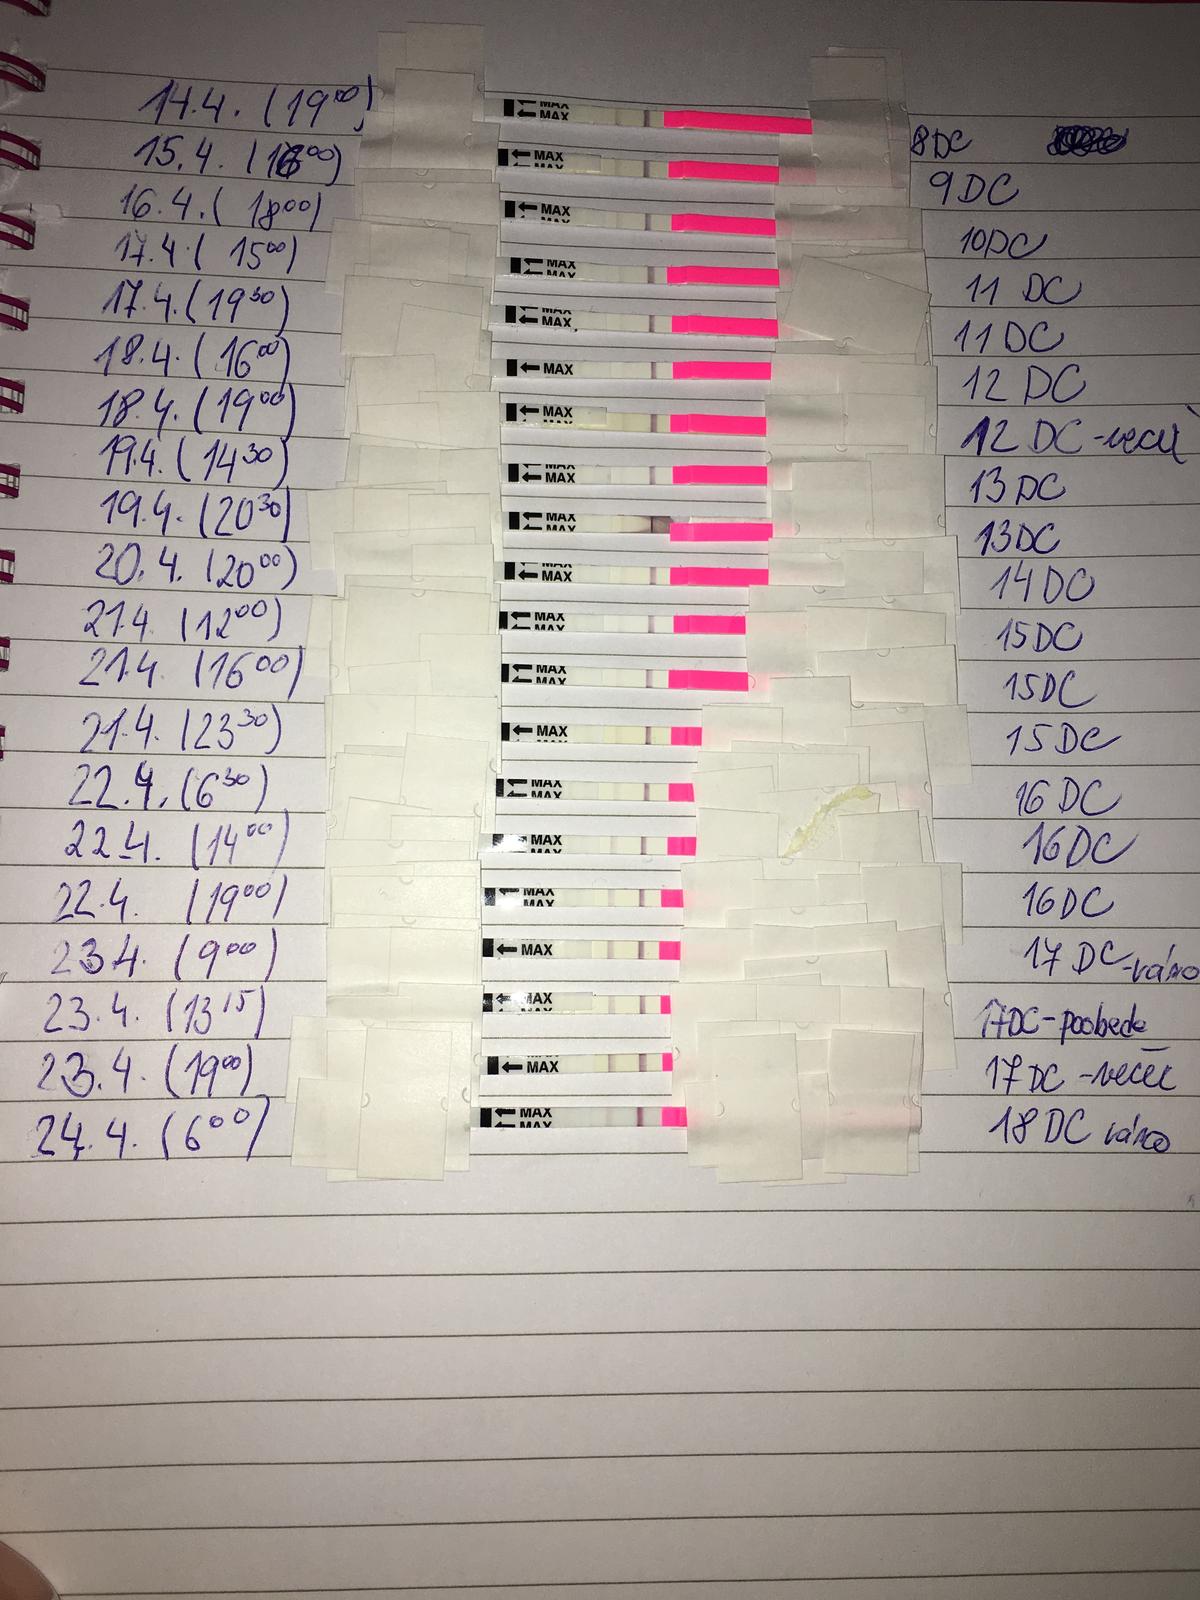 14.4. (19⁰⁰) MAX MAX 8DC
15.4. (16⁰⁰) MAX MAX 9DC
16.4. (18⁰⁰) MAX 10DC
17.4 (15⁰⁰) MAX MAX 11 DC
17.4. (19³⁰) MAX MAX 11 DC
18.4. (16⁰⁰) MAX 12 DC
18.4. (19⁰⁰) MAX MAX 12 DC-večer
19.4. (14³⁰) MAX MAX 13 DC
19.4. (20³⁰) MAX MAX 13DC
20.4. (20⁰⁰) MAX MAX 14DC
21.4. (12⁰⁰) MAX MAX 15DC
21.4. (16⁰⁰) MAX MAX 15DC
21.4. (23³⁰) MAX 15DC
22.4. (6³⁰) MAX MAX 16DC
22.4. (14⁰⁰) MAX MAX 16DC
22.4. (19⁰⁰) MAX MAX 16DC
23.4. (9⁰⁰) MAX 17 DC-ráno
23.4. (13¹⁵) MAX MAX 17DC-poobede
23.4. (19⁰⁰) MAX MAX 17DC-večer
24.4. (6⁰⁰) MAX MAX 18DC ráno